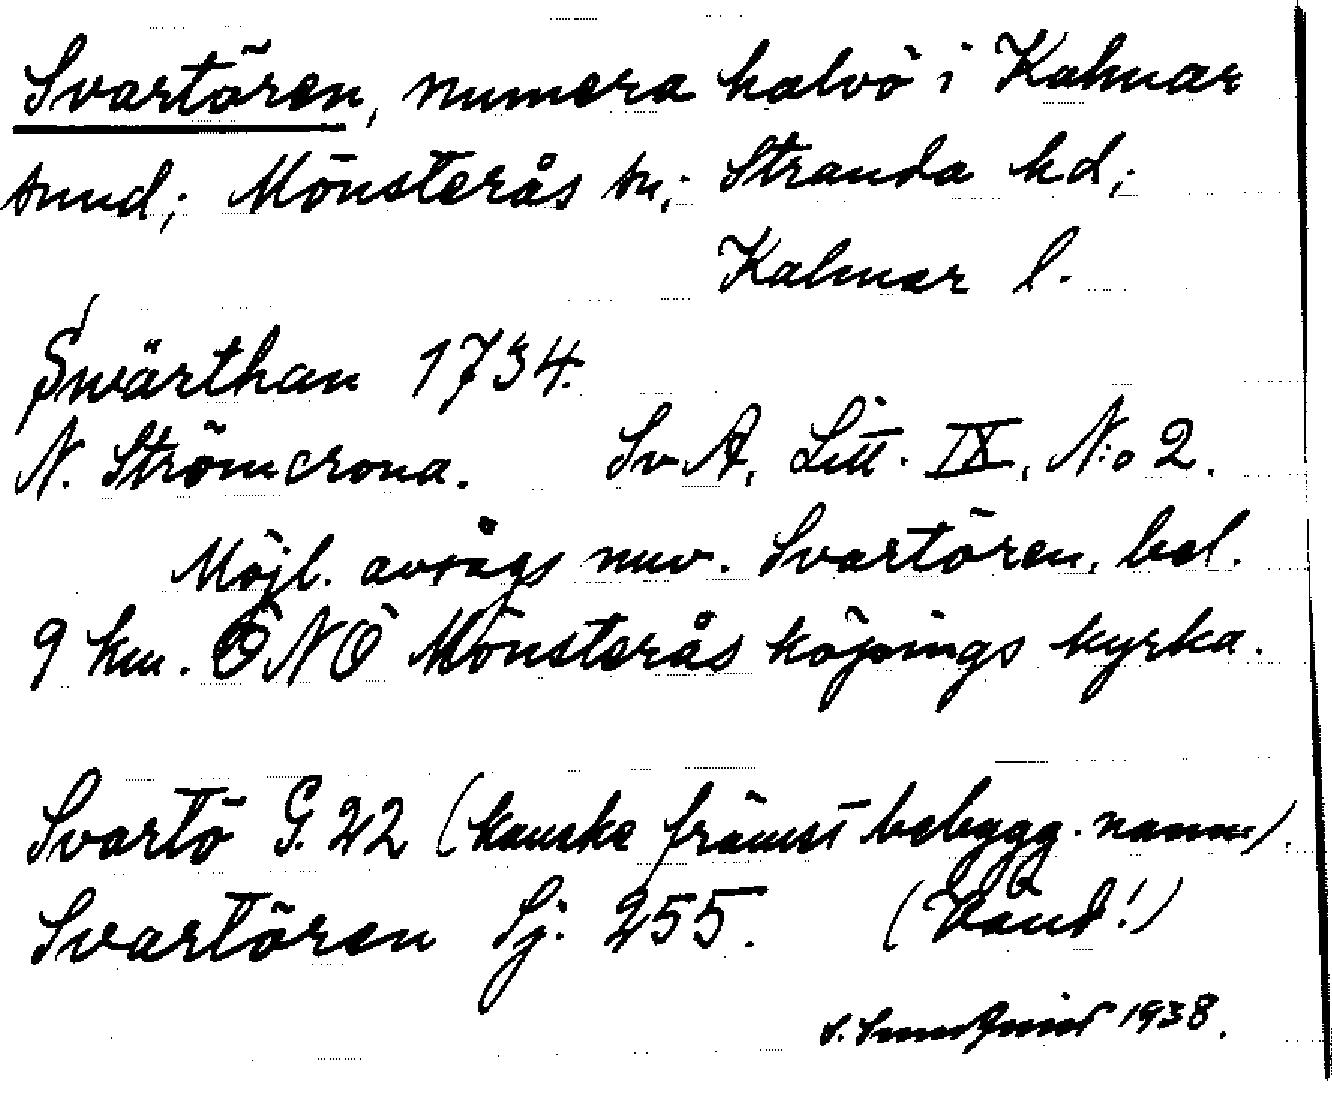 Svartören, numera halvö i Kalmar
sund; Mönsterås sn; Stranda hd;
Kalmar l.
Swärthan 1734.
N. Strömcrona. SvA, Litt. IX, N:o 2.
Möjl. avsågs nuv. Svartören, bel.
9 km. ÖNÖ Mönsterås köpings kyrka.
Svartö G. 22 (kanske främst bebygg. namn).
Svartören Sj. 255. (Vänd!)
S. Sundquist 1938.